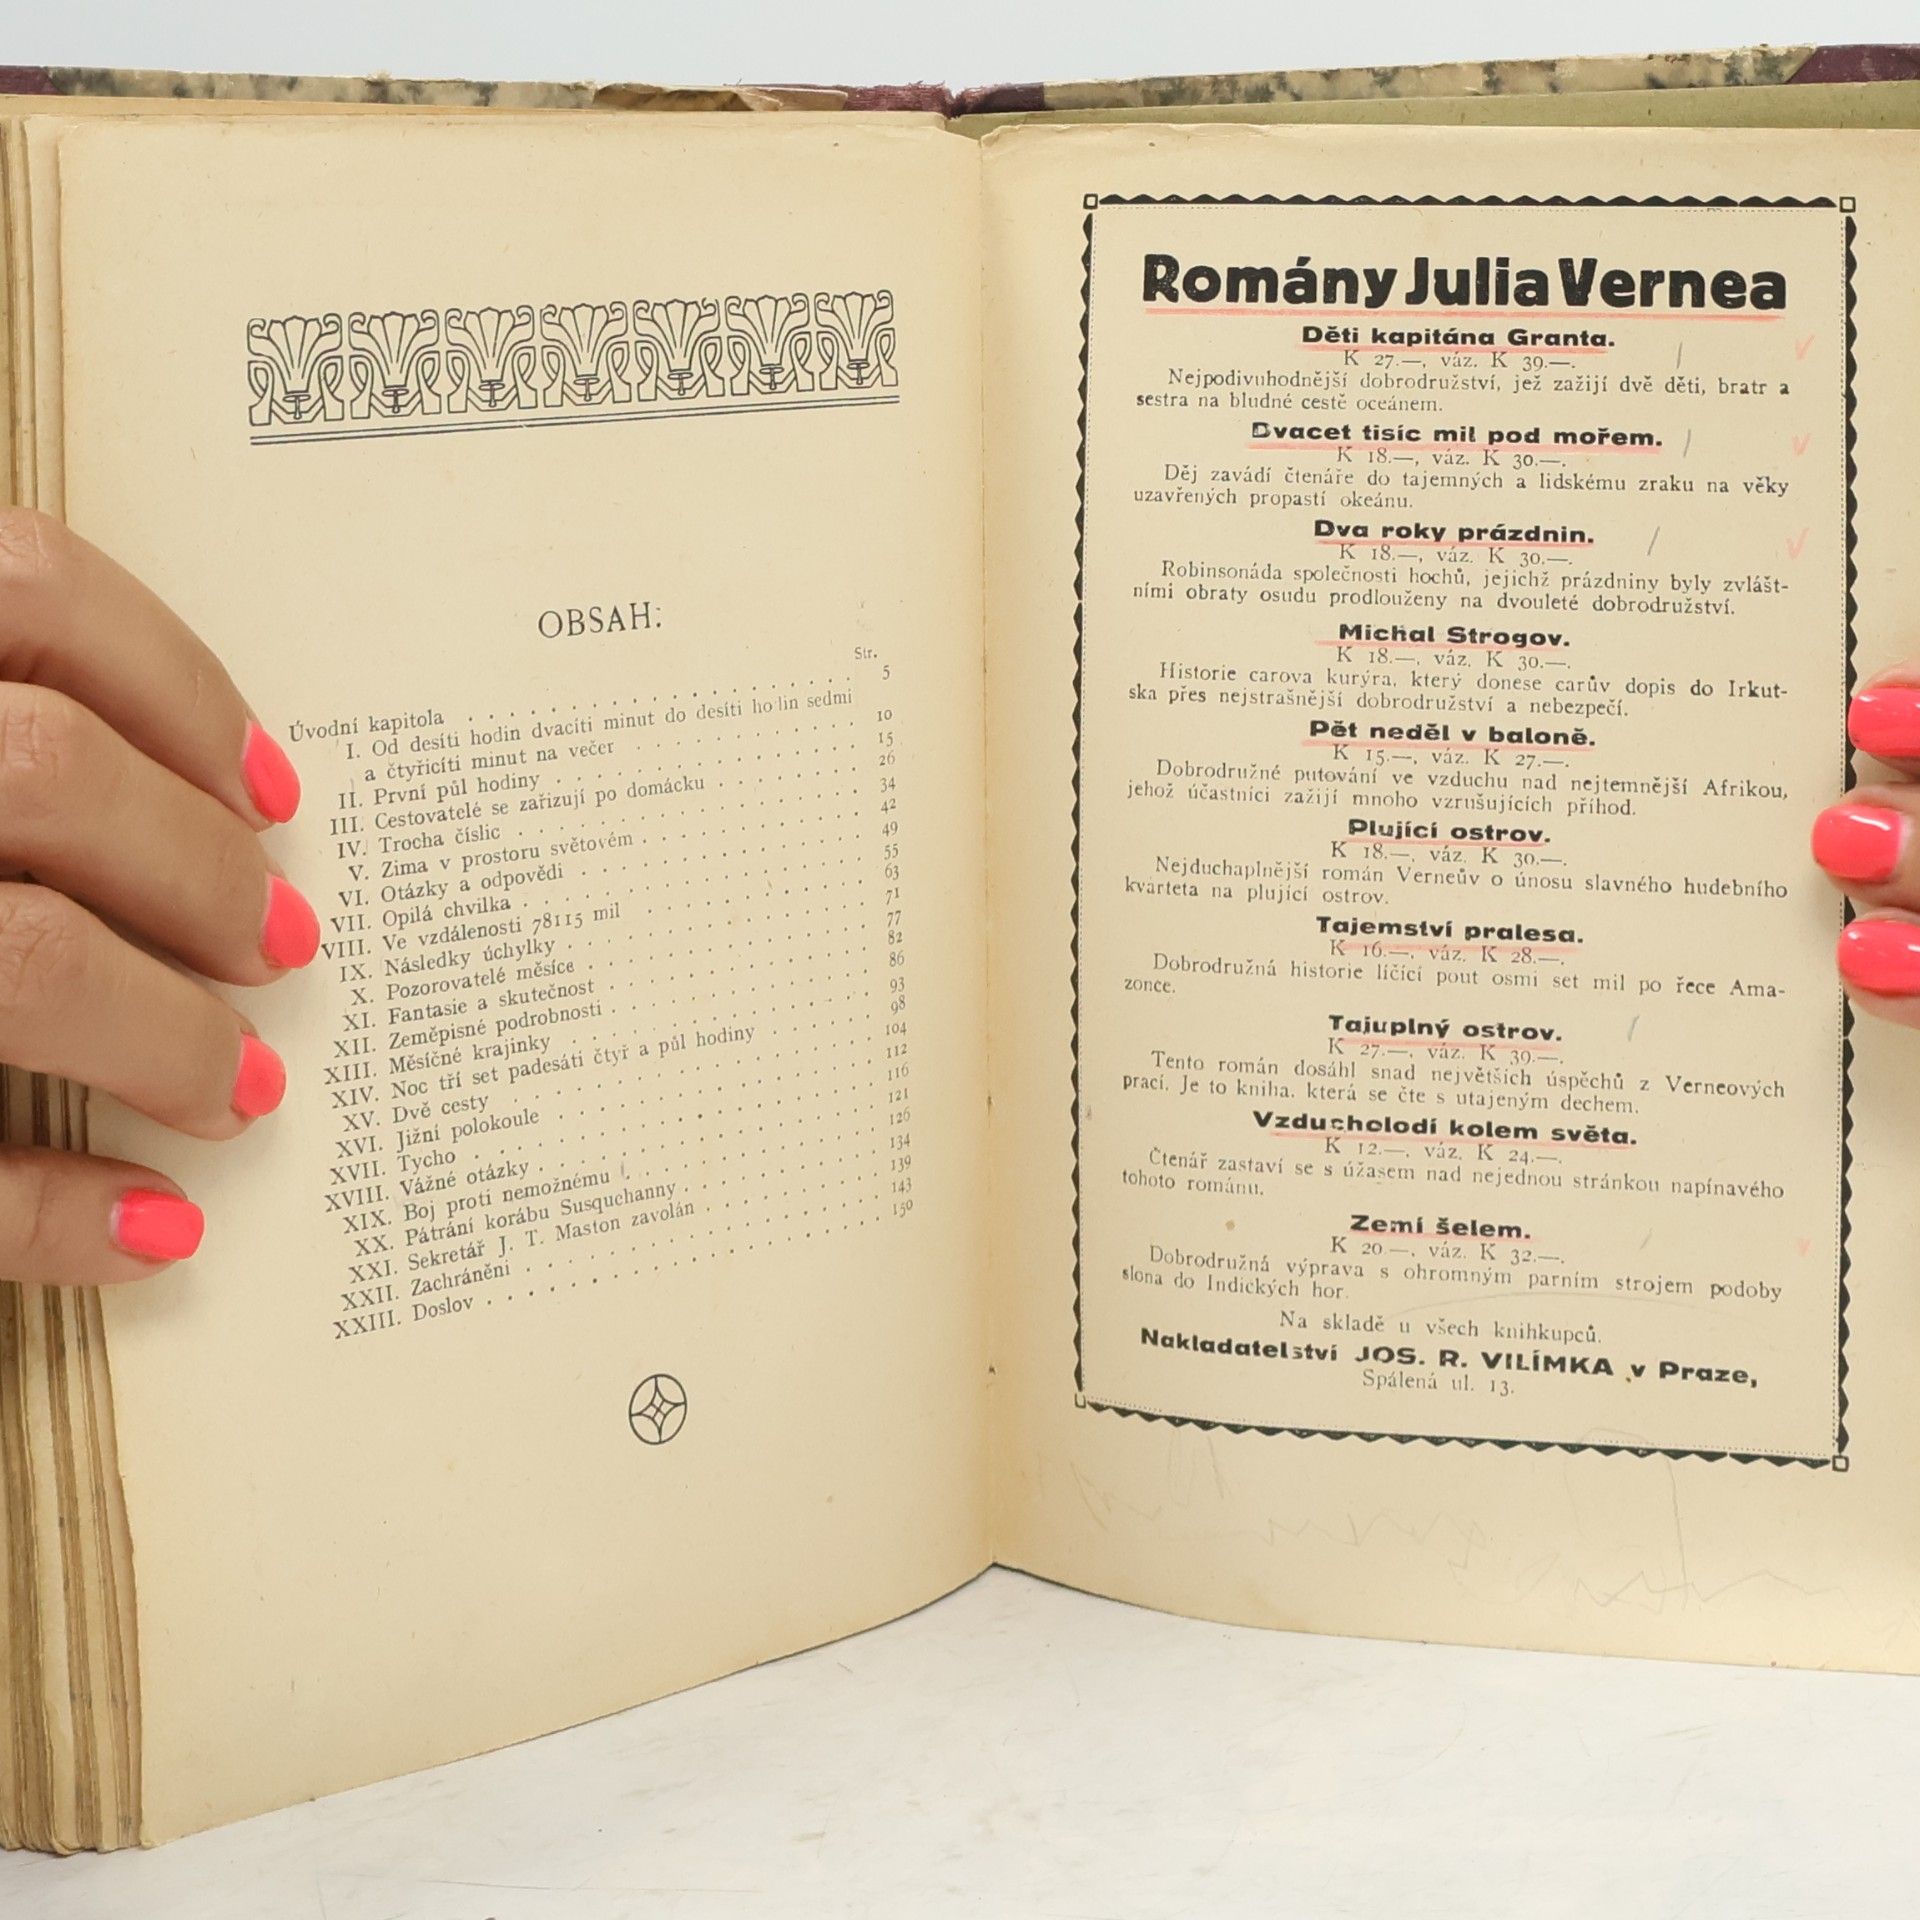 OBSAH:
Str.
Úvodní kapitola . . . . . . . . . . . . . . . . . 5
I. Od desíti hodin dvacíti minut do desíti hodin sedmi
a čtyřicíti minut na večer . . . . . . . . . . 10
II. První půl hodiny . . . . . . . . . . . . . . 15
III. Cestovatelé se zařizují po domácku . . . . . . . 26
IV. Trocha číslic . . . . . . . . . . . . . . . . 34
V. Zima v prostoru světovém . . . . . . . . . . . 42
VI. Otázky a odpovědi . . . . . . . . . . . . . . 49
VII. Opilá chvilka . . . . . . . . . . . . . . . . 55
VIII. Ve vzdálenosti 78115 mil . . . . . . . . . . . 63
IX. Následky úchylky . . . . . . . . . . . . . . . 71
X. Pozorovatelé měsíce . . . . . . . . . . . . . 77
XI. Fantasie a skutečnost . . . . . . . . . . . . 82
XII. Zeměpisné podrobnosti . . . . . . . . . . . . 86
XIII. Měsíčné krajinky . . . . . . . . . . . . . . 93
XIV. Noc tří set padesáti čtyř a půl hodiny . . . . . . 98
XV. Dvě cesty . . . . . . . . . . . . . . . . . 104
XVI. Jižní polokoule . . . . . . . . . . . . . . . 112
XVII. Tycho . . . . . . . . . . . . . . . . . . . 116
XVIII. Vážné otázky . . . . . . . . . . . . . . . . 121
XIX. Boj proti nemožnému . . . . . . . . . . . . . 126
XX. Pátrání korábu Susquchanny . . . . . . . . . . 134
XXI. Sekretář J. T. Maston zavolán . . . . . . . . . 139
XXII. Zachráněni . . . . . . . . . . . . . . . . . 143
XXIII. Doslov . . . . . . . . . . . . . . . . . . 150
Romány Julia Vernea
Děti kapitána Granta.
K 27.—, váz. K 39.—.
Nejpodivuhodnější dobrodružství, jež zažijí dvě děti, bratr a
sestra na bludné cestě oceánem.
Dvacet tisíc mil pod mořem.
K 18.—, váz. K 30.—.
Děj zavádí čtenáře do tajemných a lidskému zraku na věky
uzavřených propastí okeánu.
Dva roky prázdnin.
K 18.—, váz. K 30.—.
Robinsonáda společnosti hochů, jejichž prázdniny byly zvlášt-
ními obraty osudu prodlouženy na dvouleté dobrodružství.
Michal Strogov.
K 18.—, váz. K 30.—.
Historie carova kurýra, který donese carův dopis do Irkut-
ska přes nejstrašnější dobrodružství a nebezpečí.
Pět neděl v baloně.
K 15.—, váz. K 27.—.
Dobrodružné putování ve vzduchu nad nejtemnější Afrikou,
jehož účastníci zažijí mnoho vzrušujících příhod.
Plující ostrov.
K 18.—, váz. K 30.—.
Nejduchaplnější román Verneův o únosu slavného hudebního
kvarteta na plující ostrov.
Tajemství pralesa.
K 16.—, váz. K 28.—.
Dobrodružná historie líčící pout osmi set mil po řece Ama-
zonce.
Tajuplný ostrov.
K 27.—, váz. K 39.—.
Tento román dosáhl snad největších úspěchů z Verneových
prací. Je to kniha, která se čte s utajeným dechem.
Vzducholodí kolem světa.
K 12.—, váz. K 24.—.
Čtenář zastaví se s úžasem nad nejednou stránkou napínavého
tohoto románu.
Zemí šelem.
K 20.—, váz. K 32.—.
Dobrodružná výprava s ohromným parním strojem podoby
slona do Indických hor.
Na skladě u všech knihkupců.
Nakladatelství JOS. R. VILÍMKA v Praze,
Spálená ul. 13.